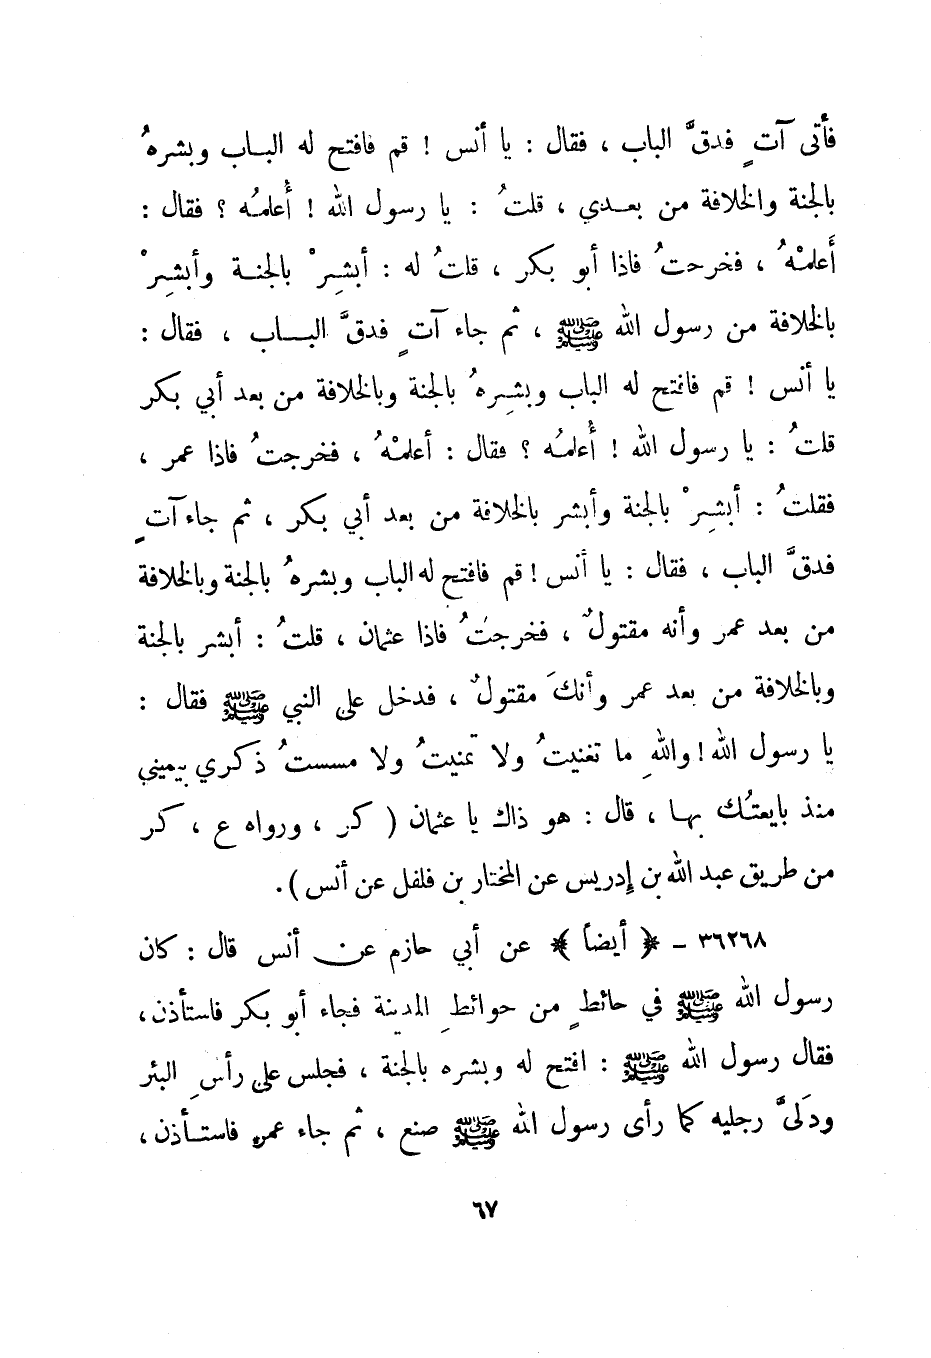 فأتى آتٍ فدقَّ الباب ، فقال : يا أنس ! قم فافتح له البـاب وبشرهُ
بالجنة والخلافة من بعـدي ، قلتُ : يا رسول الله ! أُعلمـُه ؟ فقال :
أَعلمْهُ ، فخرجتُ فاذا أبو بكر ، قلتُ له : أبشِرْ بالجنـة وأبشِرْ
بالخلافة من رسول الله ﷺ ، ثم جاء آتٍ فدقَّ البـاب ، فقال :
يا أنس ! قم فافتح له الباب وبشِرهُ بالجنة وبالخلافة من بعد أبي بكر
قلتُ : يا رسول الله ! أُعلمـُه ؟ فقال : أعلمْهُ ، فخرجتُ فاذا عمر ،
فقلتُ : أبشِرْ بالجنة وأبشر بالخلافة من بعد أبي بكر ، ثم جاء آتٍ
فدقَّ الباب ، فقال : يا أنس ! قم فافتح له الباب وبشرهُ بالجنة وبالخلافة
من بعد عمر وأنه مقتولٌ ، فخرجتُ فاذا عثمان ، قلتُ : أبشر بالجنة
وبالخلافة من بعد عمر وأنكَ مقتولٌ ، فدخل على النبي ﷺ فقال :
يا رسول الله ! واللهِ ما تغنيتُ ولا تمنيتُ ولا مسستُ ذكري بيميني
منذ بايعتُك بهـا ، قال : هو ذاك يا عثمان ( كر ، ورواه ع ، كر
من طريق عبد الله بن إدريس عن المختار بن فلفل عن أنس ) .
٣٦٢٦٨ ـ ﴿ أيضاً ﴾ عن أبي حازم عن أنس قال : كان
رسول الله ﷺ في حائطٍ من حوائطِ المدينة فجاء أبو بكر فاستأذن ،
فقال رسول الله ﷺ : افتح له وبشره بالجنة ، فجلس على رأسِ البئر
ودَلىَّ رجليه كما رأى رسول الله ﷺ صنع ، ثم جاء عمر فاستـأذن ،
٦٧